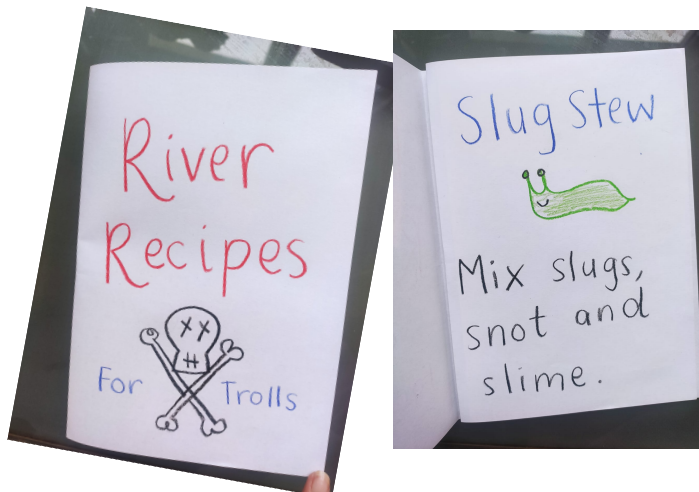 River
Recipes
For Trolls
Slug Stew
Mix slugs,
snot and
slime.